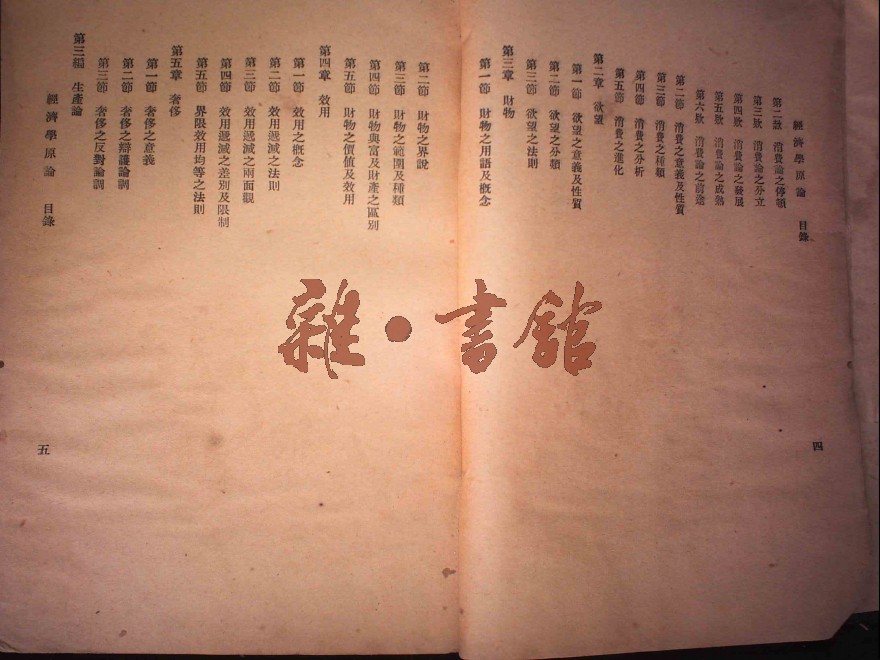 經濟學原論 目錄
第二款 消費論之停頓
第三款 消費論之分立
第四款 消費論之發展
第五款 消費論之成熟
第六款 消費論之前途
第二節 消費之意義及性質
第三節 消費之種類
第四節 消費之分析
第五節 消費之進化
第二章 欲望
第一節 欲望之意義及性質
第二節 欲望之分類
第三節 欲望之法則
第三章 財物
第一節 財物之用語及概念
四
第二節 財物之界說
第三節 財物之範圍及種類
第四節 財物與富及財產之區別
第五節 財物之價值及效用
第四章 效用
第一節 效用之概念
第二節 效用遞減之法則
第三節 效用遞減之兩面觀
第四節 效用遞減之差別及限制
第五節 界限效用均等之法則
第五章 奢侈
第一節 奢侈之意義
第二節 奢侈之辯護論調
第三節 奢侈之反對論調
第三編 生產論
經濟學原論 目錄
五
雜·書館